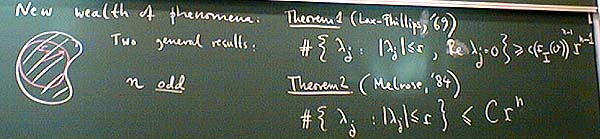 New wealth of phenomena:
Two general results:
n odd
Theorem 1 (Lax-Phillips, '69)
#{ λj : |λj| ≤ r, Re λj = 0 } ≥ c(r_I(O))^{n-1} r^{n-1}
Theorem 2 (Melrose, '84)
#{ λj : |λj| ≤ r } ≤ C r^n